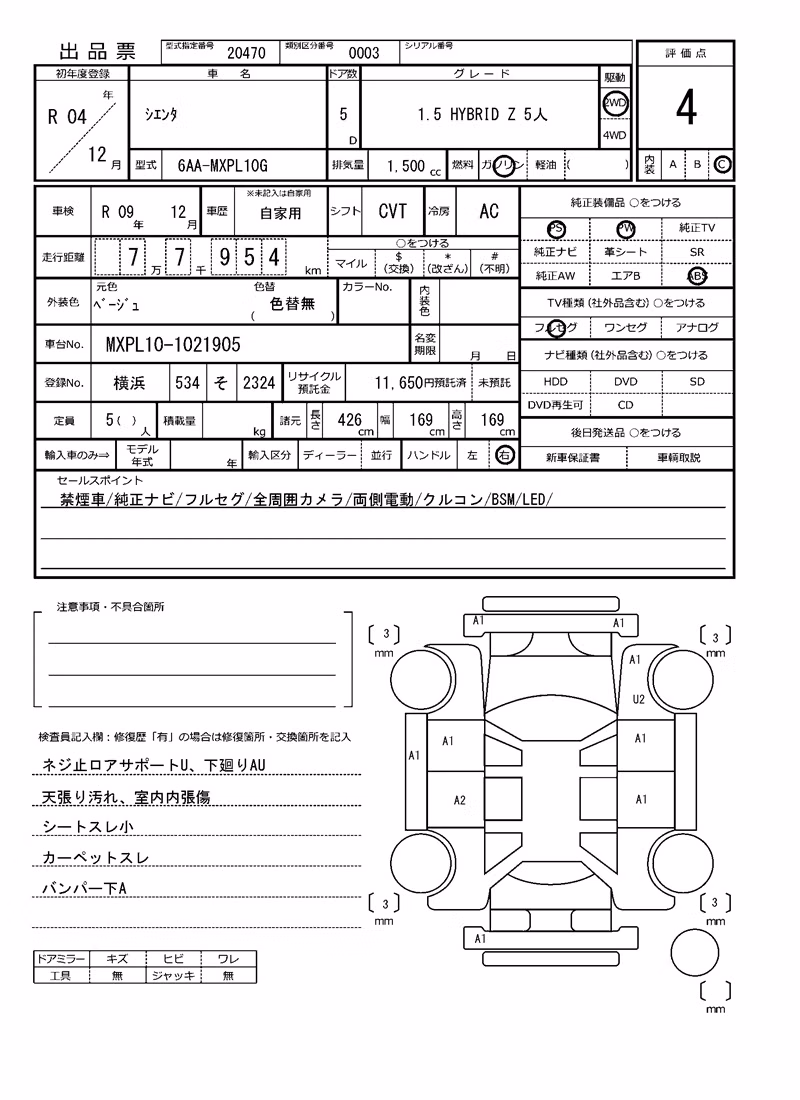 出品票 型式指定番号 20470 類別区分番号 0003 シリアル番号
評価点
4
内装 A B C
初年度登録 車名 ドア数 グレード 駆動
R 04 年 12 月 シエンタ 5 D 1.5 HYBRID Z 5人 2WD
4WD
型式 6AA-MXPL10G 排気量 1,500 cc 燃料 ガソリン 軽油 ( )
車検 R 09 年 12 月 車歴 ※未記入は自家用 自家用 シフト CVT 冷房 AC
走行距離 7 万 7 千 9 5 4 km
○をつける
マイル $ (交換) * (改ざん) # (不明)
外装色 元色 ベージュ 色替 ( 色替無 ) カラーNo. 内装色
車台No. MXPL10-1021905 名変期限 月 日
登録No. 横浜 534 そ 2324 リサイクル預託金 11,650円預託済 未預託
定員 5( ) 人 積載量 kg 諸元 長さ 426 cm 幅 169 cm 高さ 169 cm
輸入車のみ⇒ モデル年式 年 輸入区分 ディーラー 並行 ハンドル 左 右
純正装備品 ○をつける
PS PW 純正TV
純正ナビ 革シート SR
純正AW エアB ABS
TV種類(社外品含む)○をつける
フルセグ ワンセグ アナログ
ナビ種類(社外品含む)○をつける
HDD DVD SD
DVD再生可 CD
後日発送品 ○をつける
新車保証書 車輌取説
セールスポイント
禁煙車/純正ナビ/フルセグ/全周囲カメラ/両側電動/クルコン/BSM/LED/
注意事項・不具合箇所
検査員記入欄：修復歴「有」の場合は修復箇所・交換箇所を記入
ネジ止ロアサポートU、下廻りAU
天張り汚れ、室内内張傷
シートスレ小
カーペットスレ
バンパー下A
ドアミラー キズ ヒビ ワレ
工具 無 ジャッキ 無
A1 A1
3 mm 3 mm
A1
U2
A1 A1 A1
A2 A1
3 mm 3 mm
A1
mm